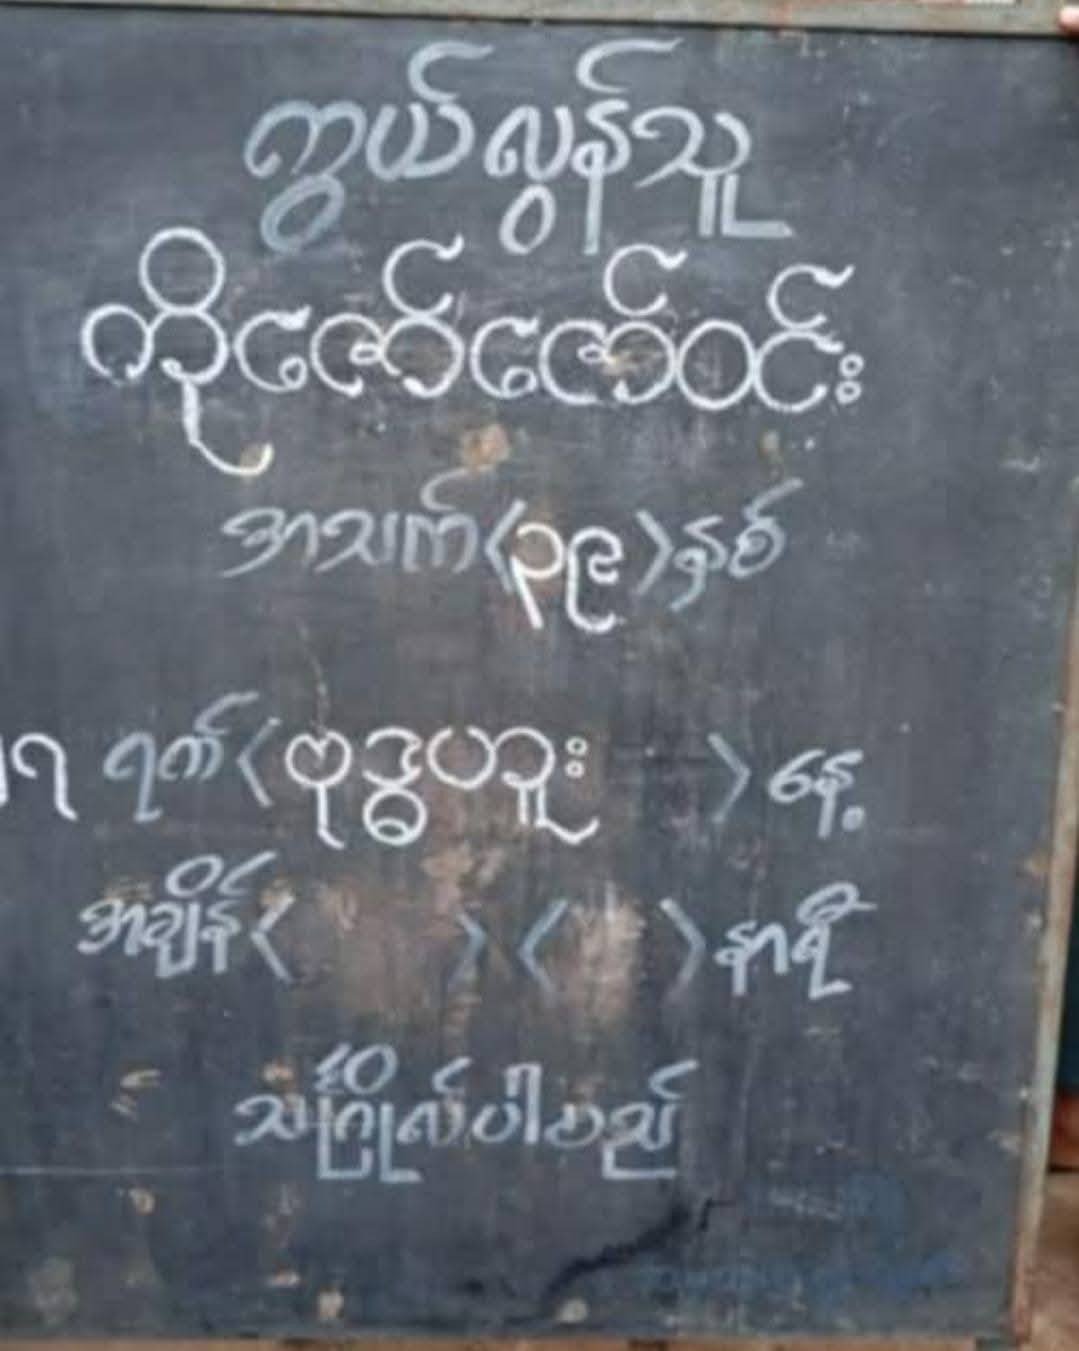 ကွယ်လွန်သူ
ကိုဇော်ဇော်ဝင်း
အသက်〈၃၉〉နှစ်
၂၇ ရက်〈ဗုဒ္ဓဟူး 〉နေ့
အချိန်〈 〉〈 〉နာရီ
သင်္ဂြိုလ်ပါမည်